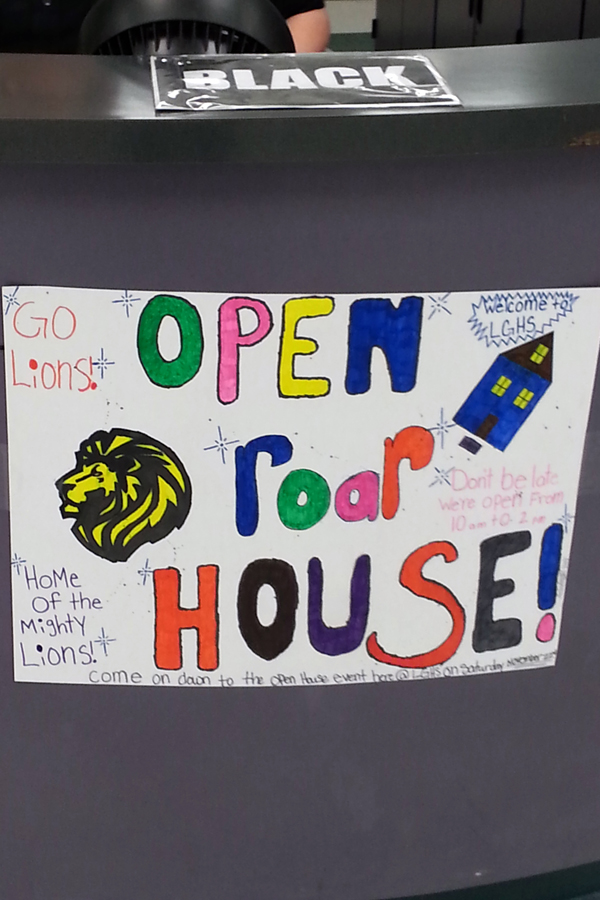 BLACK
GO
Lions!
OPEN
Welcome to
LGHS
roar
Don't be late
We're open From
10am to 2 pm
HOUSE!
HoMe
OF the
Mighty
Lions!
Come on down to the open House event here @ LGHS on Saturday November